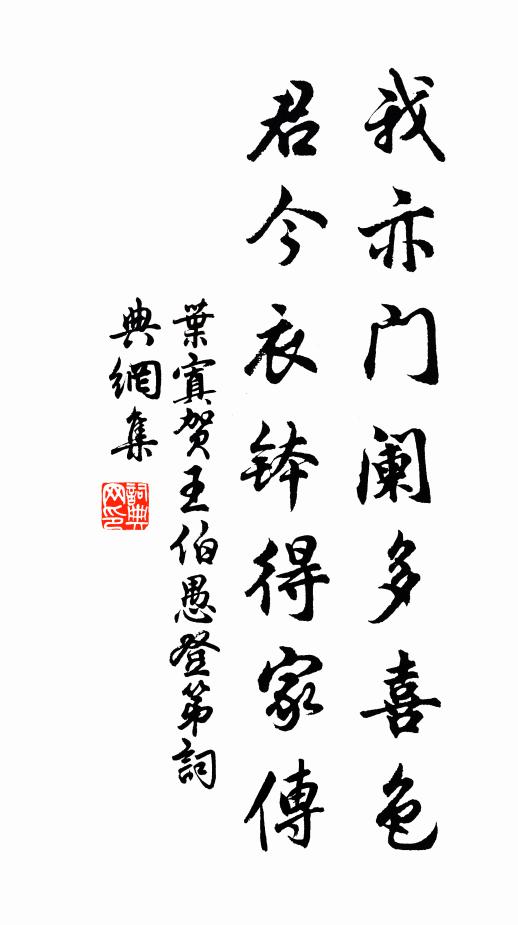 我亦门阑多喜色
君今衣钵得家傳
葉寘贺王伯愚登第詞
典網集
詞典网印